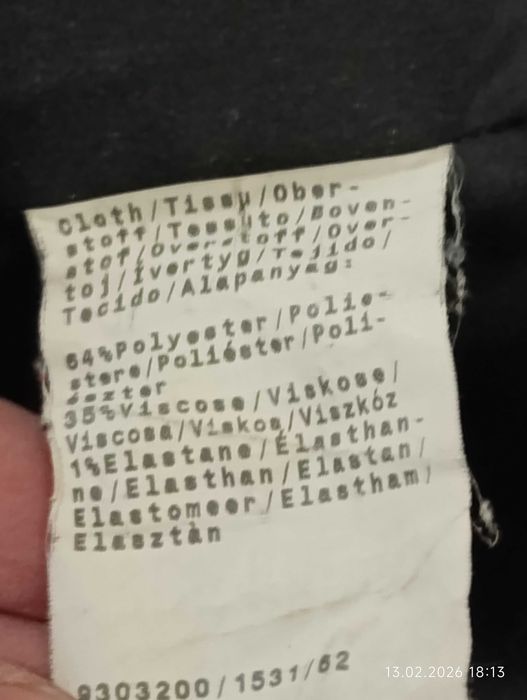 Cloth/Tissu/Ober-
stoff/Tessuto/Boven-
stof/Overstoff/Over-
toj/Ivertyg/Tejido/
Tecido/Alapanyag:
64%Polyester/Polie-
stere/Poliéster/Poli-
észter
35%Viscose/Viskose/
Viscosa/Viskos/Viszkóz
1%Elastane/Élasthan-
ne/Elasthan/Elastan/
Elastomeer/Elastham/
Elasztán
9303200/1531/62
13.02.2026 18:13